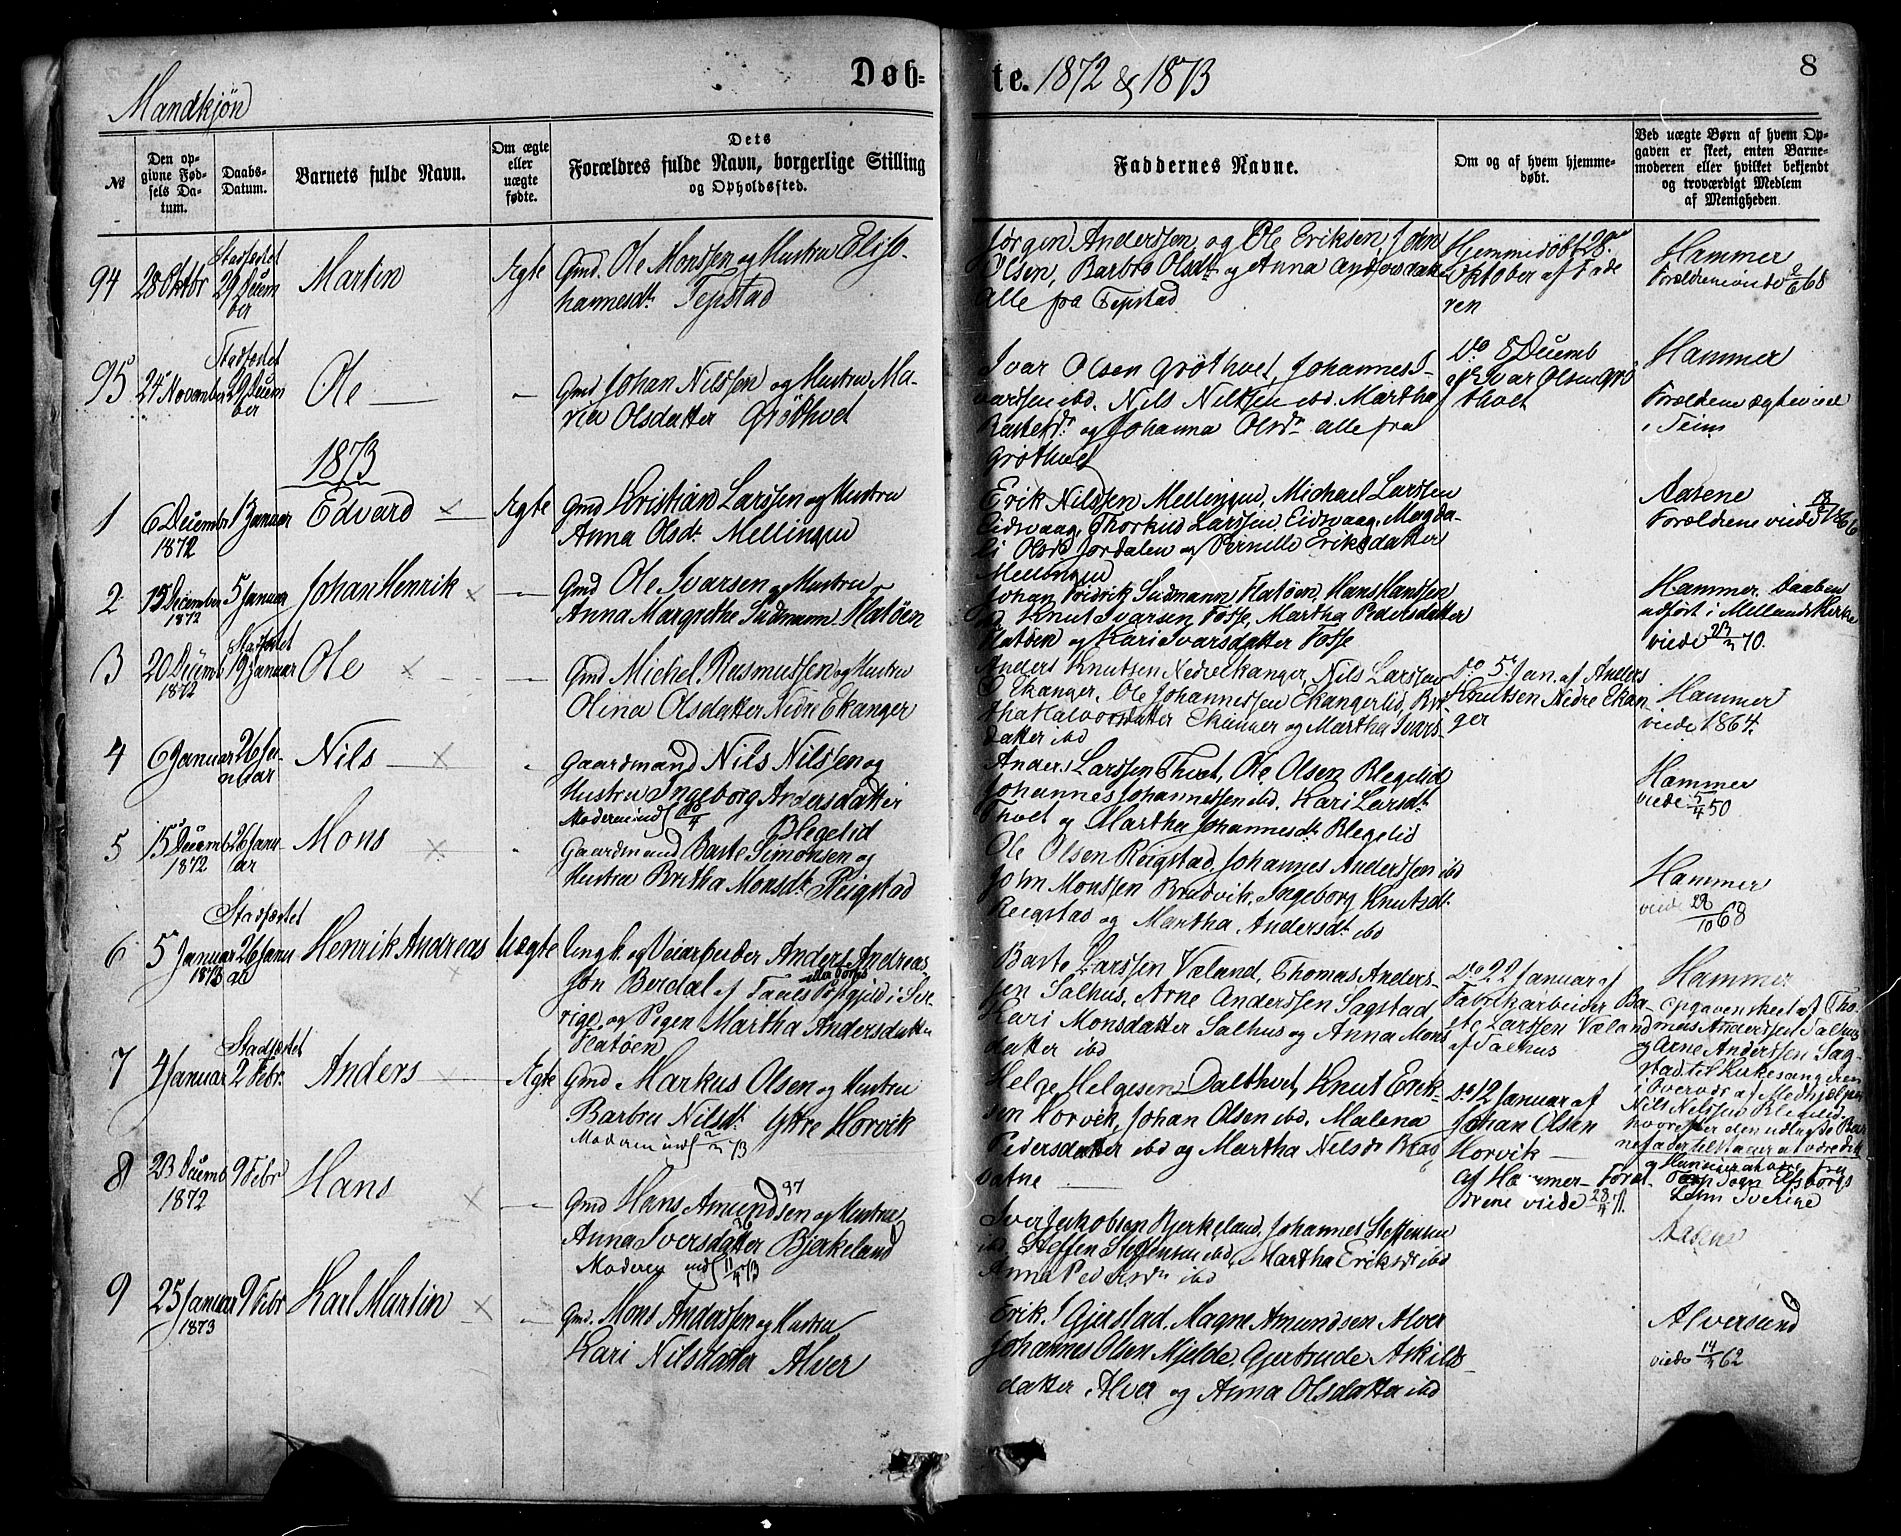 Døb-te. 1872 & 1873
8
Mandkjøn
No
Den op-
givne Fød-
sels Da-
tum.
Daabs-
Datum.
Barnets fulde Navn.
Om ægte
eller
uægte
fødte.
Dets
Forældres fulde Navn, borgerlige Stilling
og Opholdssted.
Faddernes Navne.
Om og af hvem hjemme-
døbt.
Ved uægte Børn af hvem Op-
gaven er skeet, enten Barne-
moderen eller hvilket bekjendt
og troværdigt Medlem
af Menigheden.
94
28 Oktbr
Stadfæstet
29 Decem
ber
Martin
Ægte
Gmd. Ole Monssen og Hustru Elisjo-
hannesdt. Tepstad
Jørgen Anderssen og Ole Eriksen, John
Olsen, Barbro Olsdt og Anna Andersdatter
alle fra Tepstad
Hjemmedøbt 28de
Oktober af Fade
ren
Hammer
Forældrene viede 68
95
24 November
Stadfæstet
29 Decem
ber
Ole
Gmd Johan Nilssen og Hustru Ma-
ria Olsdatter Grøthvet
Ivar Olsen Grøthvet, Johannes I-
varssen ibd. Nils Nilssen ibd. Martha
og Johanna Olsdr alle fra
Grøthvet
Do 8 Decemb
af Ivar Olsen Grø
thvet
Hammer
Forældrene ægteviede
i
1873
1
6 Decembr
1872
1 Januar
Edvard
Ægte
Gmd Kristian Larssen og Hustru
Anna Olsdt. Mellingen
Erik Nilssen Mellingen, Michael Larssen
Eidsvaag, Larssen Eidsvaag, Magda-
li Olsdr Jordalen og Pernille Eriksdatter
Mellingen
Aasene
Forældrene viede 1866
2
December
1872
5 Januar
Johan Henrik
Gmd Ole Ivarsen og Hustru
Anna Margrethe Sudmann Flatøen
Johan Fredrik Sudmann Flatøen, Hans Hanssen
Knut Ivarsen Fosse, Martha Pedersdatter
Flatøen og Kari Ivarsdatter Fosse
Hammer. Daaben
udført i Mellands Kirke
viede 70.
3
20 Decemb
1872
Stadfæstet
19 Januar
Ole
Gmd Michel Rasmussen og Hustru
Olina Olsdatter Nedre Ekanger
Anders Knutsen Nedre Ekanger, Nils Larssen
Ekanger. Ole Johannessen Ekangerlid, Bri
tha Halvorsdatter Ekanger og Martha Ivars-
datter ibd
Do 5 Jan. af Anders
Knutsen Nedre Ekan-
ger
Hammer
viede 1864.
4
6 Januar
26 Ja-
nuar
Nils
Gaardmand Nils Nilssen og
Hustru Ingeborg Andersdatter
Moderen inds
Blegelid
Anders Larssen Thvet, Ole Olsen Blegelid
Johannes Johannessen ibd. Kari Larsdt.
Thvet og Martha Johannesdt. Blegelid
Hammer
viede 5/4 50
5
15 Decemb
1872
26 Janu-
ar
Mons
Gaardmand Baste Simonsen og
Hustru Britha Monsdt. Reigstad
Ole Olsen Reigstad, Johannes Anderssen ibd
John Monssen Bradvik, Ingeborg Knutsdt.
Reigstad og Martha Andersdt. ibd
Hammer
viede 28/10 68
6
5 Januar
1873
Stadfæstet
26 Janu
ar
Henrik Andreas
Uægte
Ungk. og Veiarbeider Anders Andreas-
søn Berdal af Prestegjeld i Sve-
rige og Pigen Martha Andersdatter
Flatøen
Baste Larssen Væland, Thomas Anders-
sen Salhus, Arne Anderssen Sagstad
Kari Monsdatter Salhus og Anna Mons
datter ibd
Do 22 Januar af
Fabrikarbeider Ba-
ste Larssen Væland
af Salhus
Hammer
Opgaven skeet af Tho
mas Anderssen Salhus
og Arne Anderssen Sag-
stad til Kirkesangeren
i Overvær af Medhjælper
Nils Nilssen Blegelid
hvorefter den udlagte Bar
nefader tilstaaer at være det
7
4 Januar
Stadfæstet
2 Febr.
Anders
Ægte
Gmd Markus Olsen og Hustru
Barbru Nilsdt. Ytre Horvik
Moderen inds 73
Helge Helgesen Dalthvet, Knut Erik-
sen Horvik, Johan Olsen ibd. Malena
Pedersdatter ibd og Martha Nilsdr
vatne
Do 12 Januar af
Johan Olsen
Horvik
af Hammer- Foræl
drene viede 28/4 71.
8
23 Decemb
1872
9 Febr
Hans
Gmd Hans Amundsen og Hustru
Anna Iversdatter Bjerkeland
Moderen inds 11/4 73
Iver Jakobsen Bjerkeland, Johannes Steffensen
ibd, Steffen Steffensen ibd, Martha Eriksdt ibd
Anna Pedersdr ibd
Aasene
9
25 Januar
1873
9 Febr
Karl Martin
Gmd. Mons Anderssen og Hustru
Kari Nilsdatter Alver
Erik I Gjerstad, Magne Amundsen Alver
Johannes Olsen Mjelde, Gjertrude Askilds-
datter Alver og Anna Olsdatter ibd
Alversund
viede 62